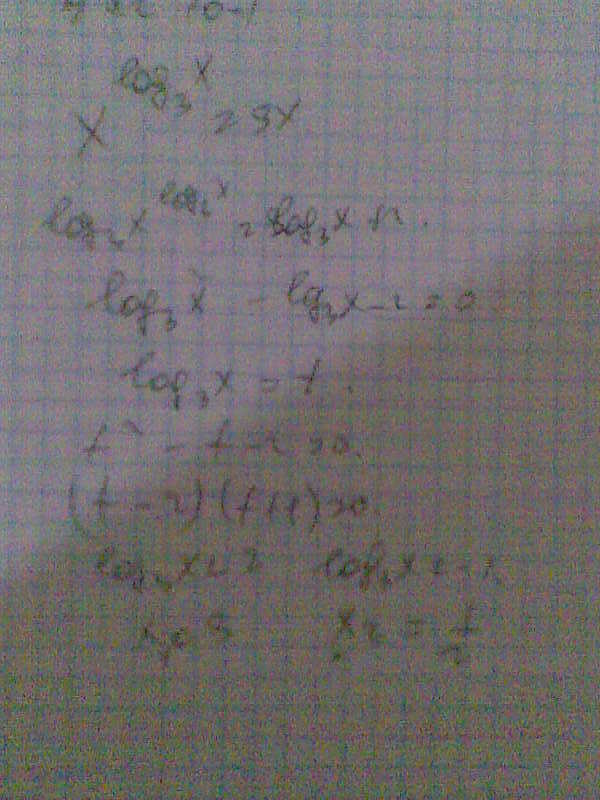 x^log₃x = 9x
log₃x^log₃x = log₃x +2.
log₃²x - log₃x - 2 = 0
log₃x = t.
t² - t - 2 = 0.
(t - 2)(t+1) = 0
log₃x = 2 log₃x = -1
x₁ = 9 x₂ = 1/3